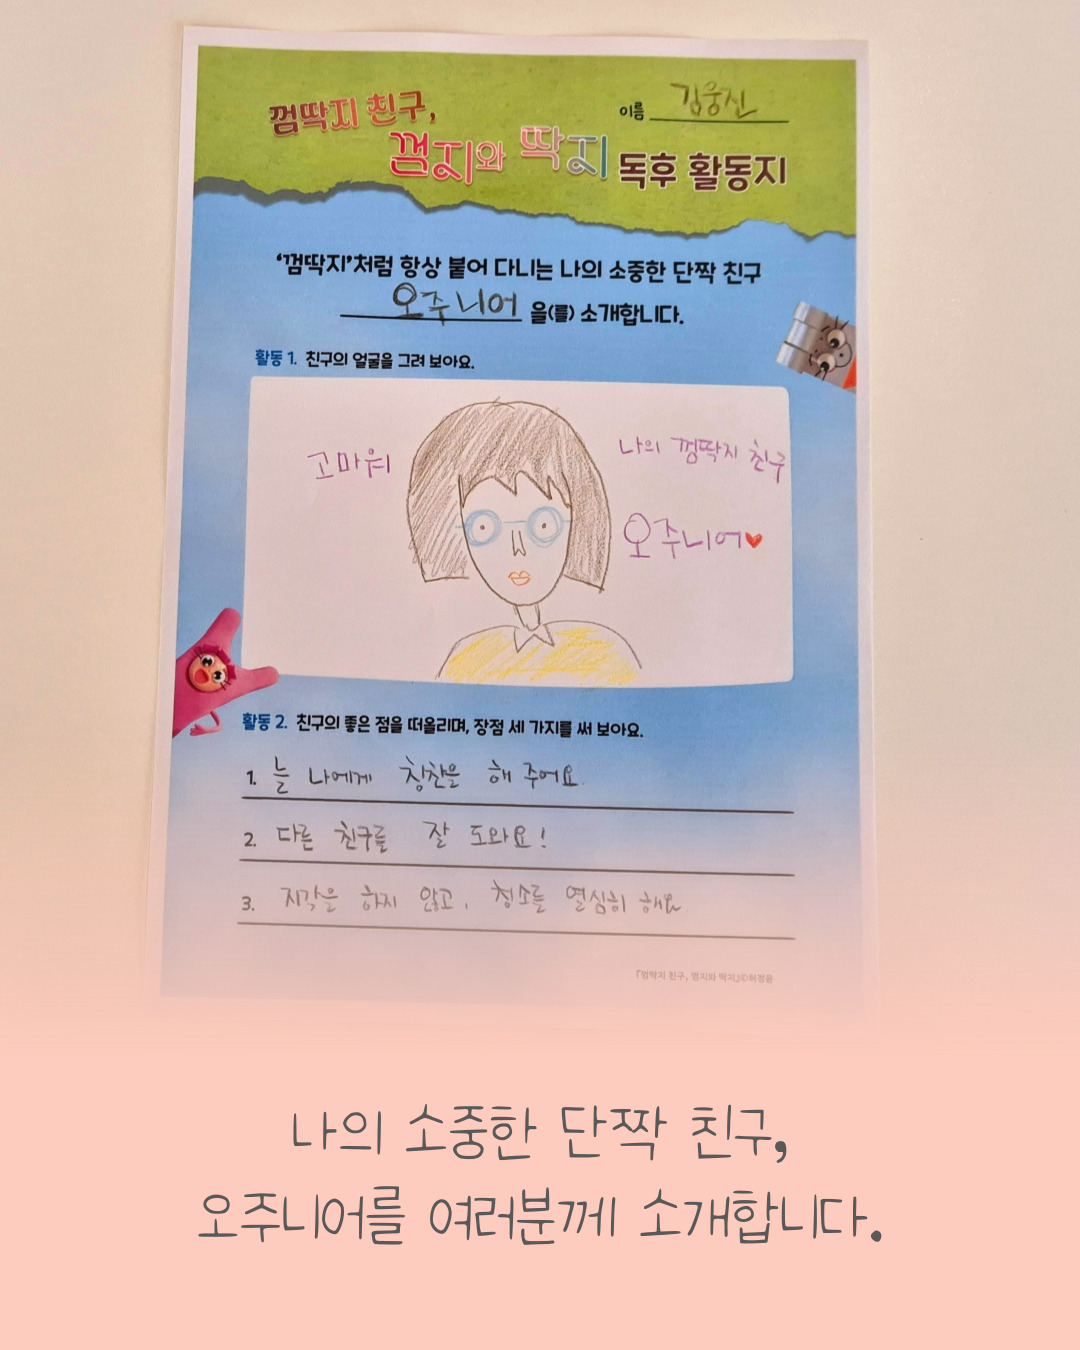 껌딱지 친구,
이름 김웅진
껌지와 딱지 독후 활동지
‘껌딱지’처럼 항상 붙어 다니는 나의 소중한 단짝 친구
오주니어 을(를) 소개합니다.
활동 1. 친구의 얼굴을 그려 보아요.
고마워
나의 껌딱지 친구
오주니어♥
활동 2. 친구의 좋은 점을 떠올리며, 장점 세 가지를 써 보아요.
1. 늘 나에게 칭찬을 해 주어요
2. 다른 친구를 잘 도와요!
3. 지각을 하지 않고, 청소를 열심히 해요
『껌딱지 친구, 껌지와 딱지』©허정윤
나의 소중한 단짝 친구,
오주니어를 여러분께 소개합니다.